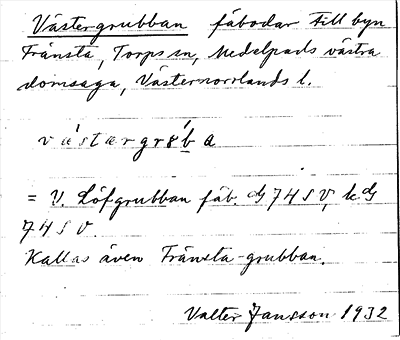 Västergrubban fäbodar till byn
Fränsta, Torps sn, Medelpads västra
domsaga, Västernorrlands l.
västærgr8ba
= V. Löfgrubban fäb. dg 74 S V, k dg
74 S V.
Kallas även Fränsta-grubban.
Valter Jansson 1932